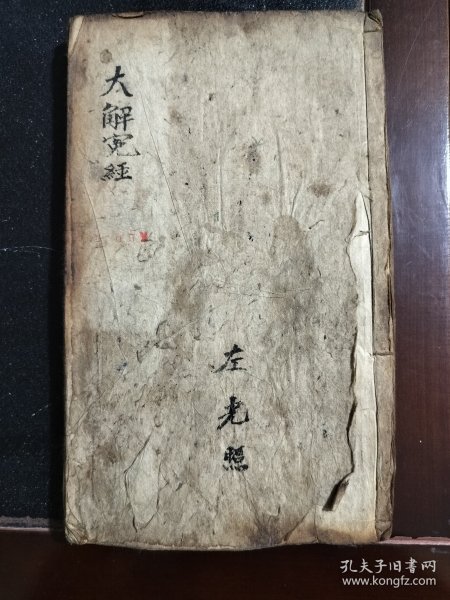 大解冤經
左光照
孔夫子旧书网
www.kongfz.com